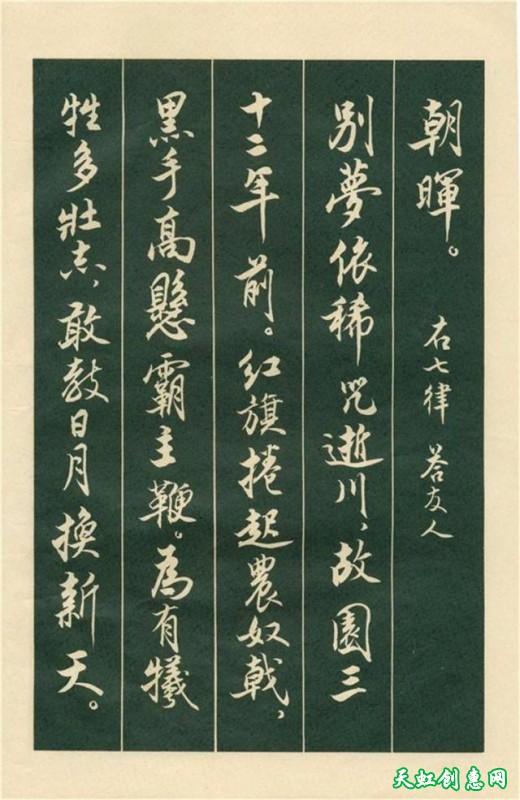 朝暉。 右七律 答友人
別夢依稀咒逝川、故園三
十二年前。紅旗捲起農奴戟、
黑手高懸霸主鞭。為有犧
牲多壯志、敢教日月換新天。
天虹创惠网